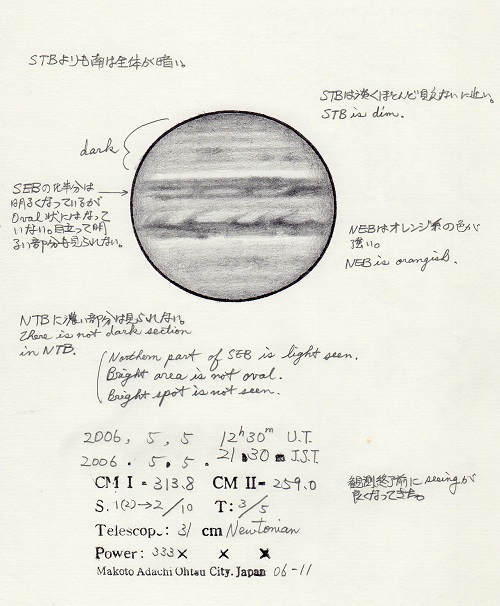 STBよりも南は全体が暗い。
STBは淡くほとんど見えないに近い。
STB is dim.
dark
SEBの北半分は
明るくなっているが
Oval状にはなって
いない。目立って明
るい部分も見られない。
NEBはオレンジ系の色が
強い。
NEB is orangish.
NTBに濃い部分は見られない。
There is not dark section
in NTB.
Northern part of SEB is light seen.
Bright area is not oval.
Bright spot is not seen.
2006, 5, 5 12h30m U.T.
2006. 5. 5. 21.30 J.S.T.
CM I = 313.8 CM II = 259.0
S. 1(2)→2/10 T: 3/5
Telescop.: 31 cm Newtonian
Power: 333× × ×
Makoto Adachi Ohtsu City. Japan 06-11
観測終了前にseeingが
良くなってきた。